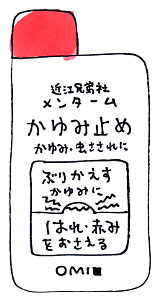 近江兄弟社
メンターム
かゆみ止め
かゆみ・虫さされに
ぶりかえす
かゆみに
はれ・赤み
をおさえる
OMI